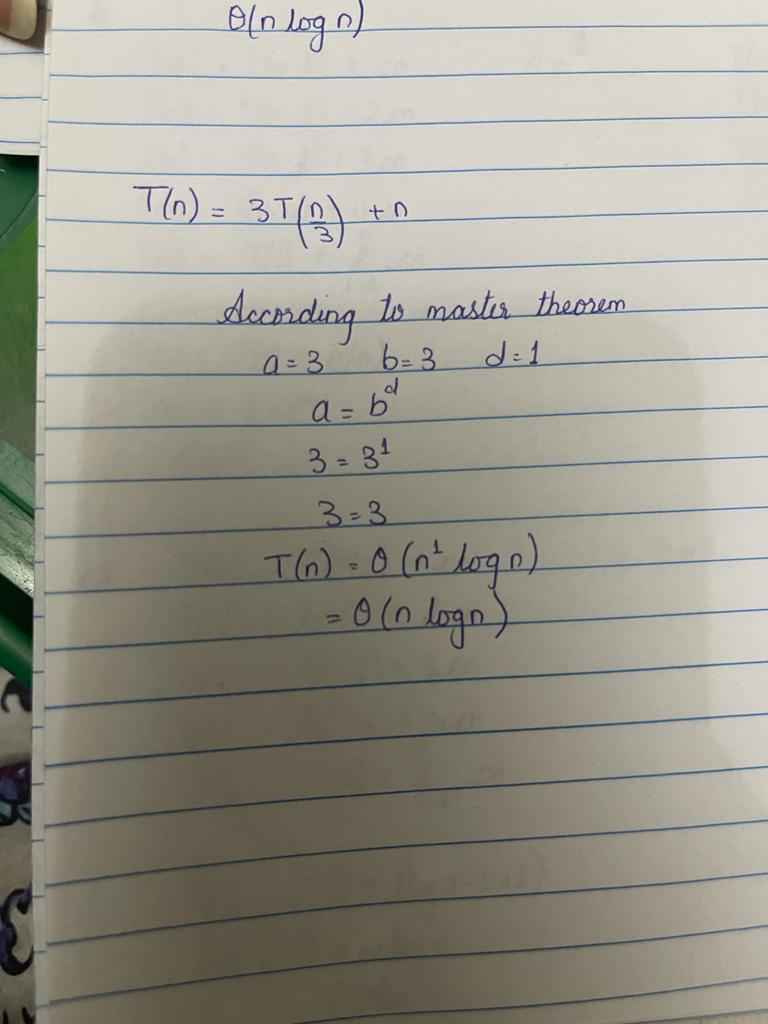 θ(n log n)
T(n) = 3T(n/3) + n
According to master theorem
a = 3 b = 3 d = 1
a = b^d
3 = 3^1
3 = 3
T(n) = θ(n^1 log n)
= θ(n log n)